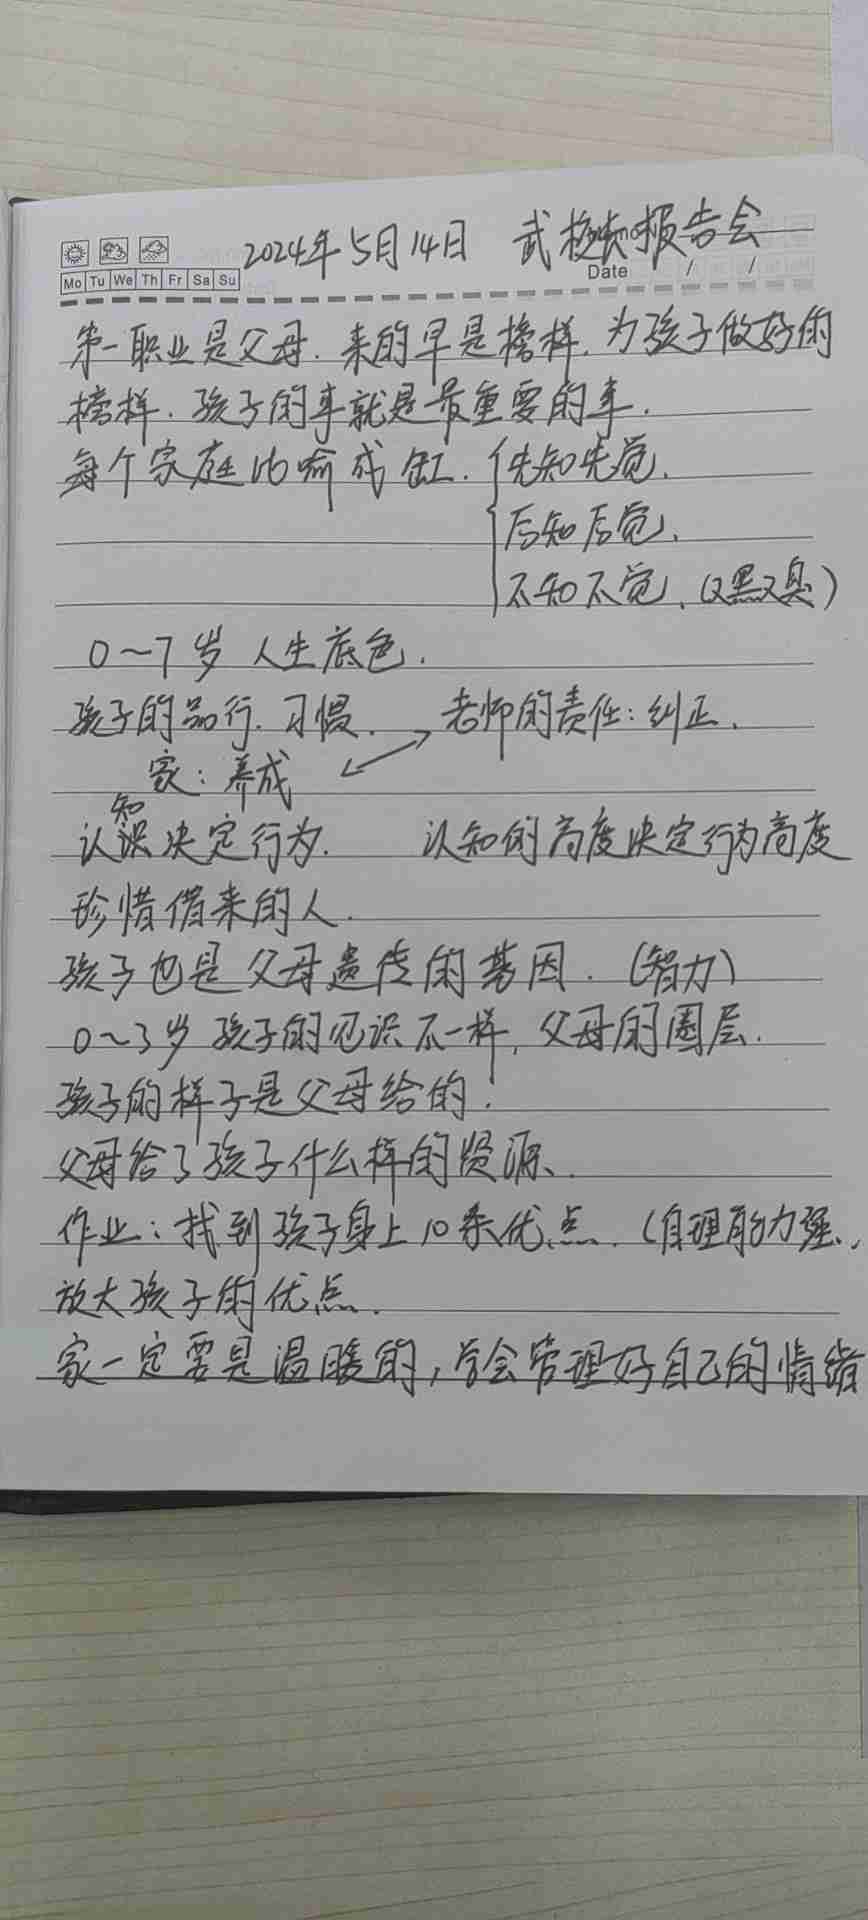 2024年5月14日 武校长报告会
Mo Tu We Th Fr Sa Su
Date / /
第一职业是父母.来的早是榜样.为孩子做好的
榜样.孩子的事就是最重要的事.
每个家庭比喻成缸. 先知先觉.
后知后觉.
不知不觉.(又黑又臭)
0~7岁 人生底色.
孩子的品行.习惯. 老师的责任:纠正.
家:养成
知
认识决定行为. 认知的高度决定行为高度
珍惜借来的人.
孩子也是父母遗传的基因.(智力)
0~3岁 孩子的见识不一样,父母的圈层.
孩子的样子是父母给的.
父母给了孩子什么样的资源.
作业:找到孩子身上10条优点.(自理能力强.
放大孩子的优点.
家一定要是温暖的,学会管理好自己的情绪